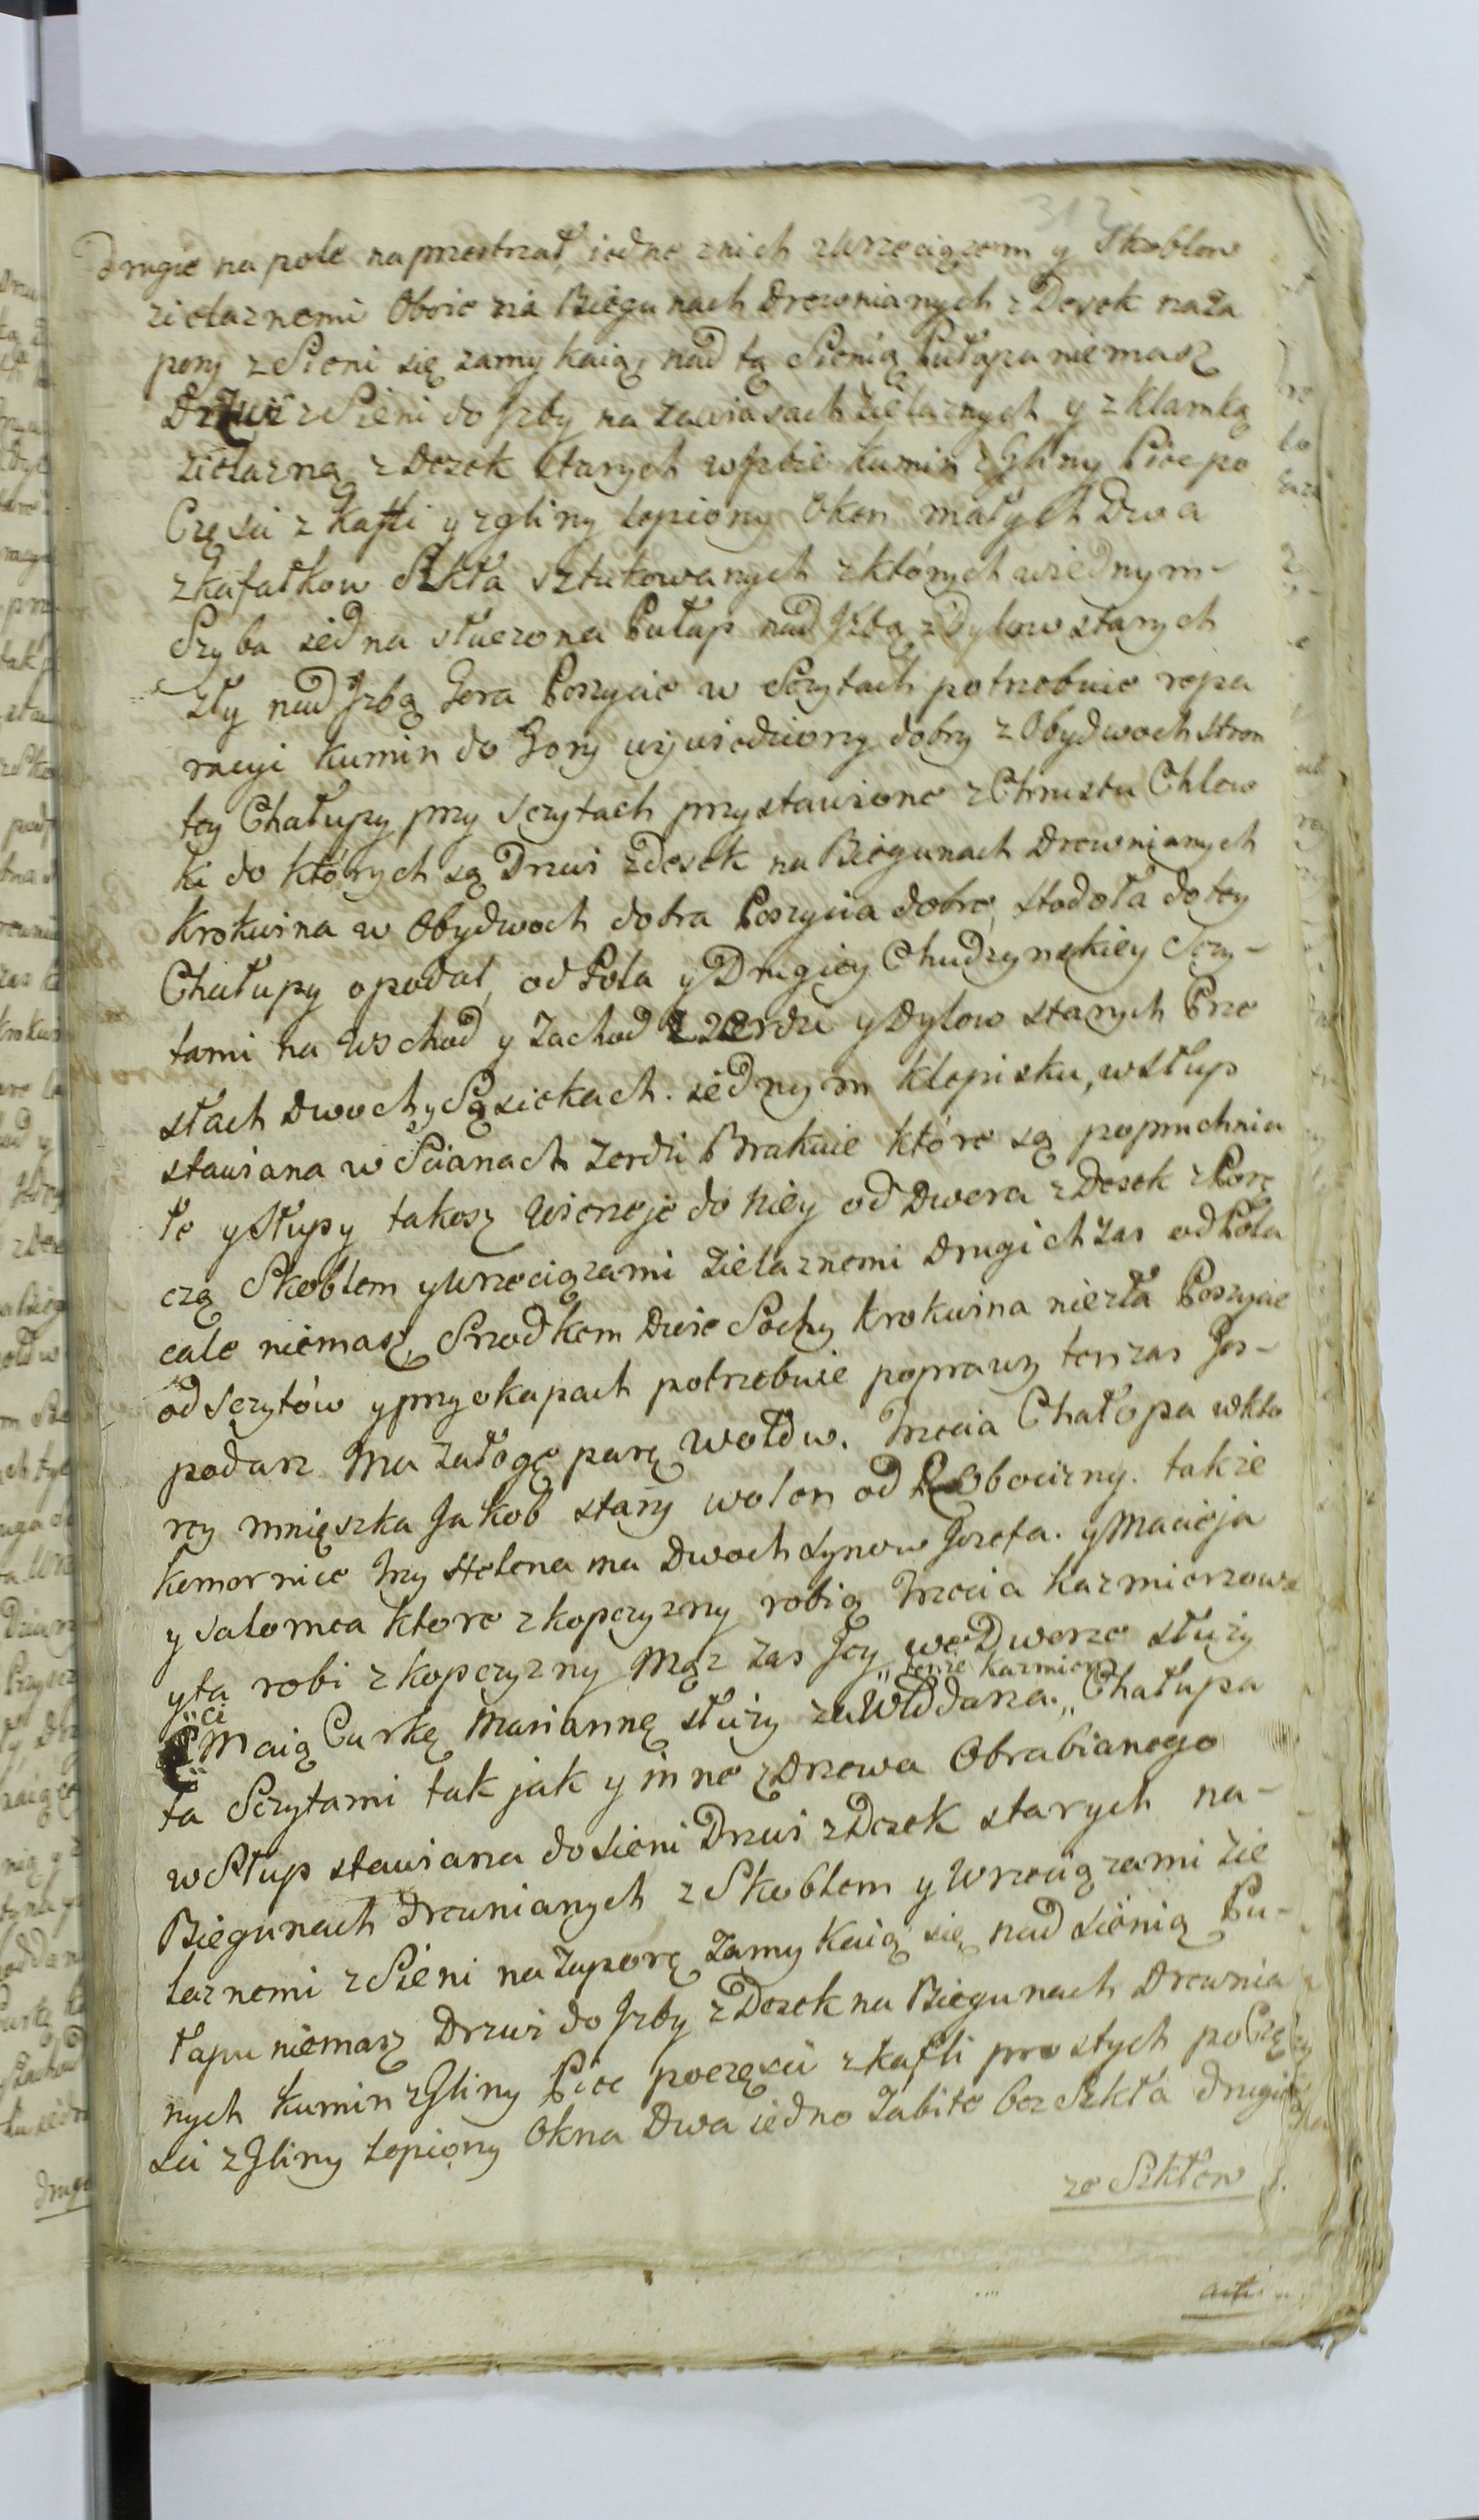 312
Drugie na pole na przestrzał, iedne z nich z Wrzeciązem y Skoblem
zielaznemi Oboie na Biegunach Drewnianych z Desek na Za
pory z Sieni się zamykaią, nad tą Sienią Pułapu niemasz
Drzwi z Sieni do Jzby na zawiasach żielaznych y z Klamką
żielazną z Desek starych w Jzbie Kumin z Gliny Piec po
Części z Kafli y z gliny lepiony Okon małych Dwa
z kafałkow Szkła sztukowanych z których wiednym
Szyba iedna stłuczona Pułap nad Jzbą z Dylow starych
zły nad Jzbą Gora Poszycie w Sczytach potrzebuie repa
racyi Kumin do Gory wywiedziony dobry z Obydwoch stron
tey Chałupy przy sczytach przystawione z Chrustu Chlew
ki do których są Drzwi z desek na Biegunach Drewnianych
Krokwina w Obydwoch dobra Poszycia dobre, stodoła do tey
Chałupy opodal, od Pola y Drugiey Chudzynskiey Sczy-
tami na Wschod y Zachod z żerdzi y Dylow starych Prze
słach Dwoch y Sąsiekach. iednym klepisku, w Słup
stawiana w Scianach żerdzi Brakuie które są popruchnia
łe y Słupy takosz Wierzeje do niey od Dwora z Desek z Porę
czą Skoblem y Wrzeciązami żielaznemi Drugich zas od Pola
cale niemasz, Srzodkem Dwie Sochy Krokwina niezła Poszycie
od Sczytów y przy okapach potrzebuie poprawy ten zas Gos-
podarz Ma załogę parę Wołów. Trzecia Chałopa w kto
rey mnięszka Jakob stary wolen od Robocizny. takze
Komornice trzy Helena ma Dwoch synow Jozefa. y Macieja
y Salomea ktore z kopczyzny robią Trzecia Kazmierzowa
y ta robi z kopczyzny Mąz zas Jey we Dworze służy
ci tenze Kazmierz
Maią Curkę Mariannę służy za Wołodarza. Chałupa
ta Sczytami tak jak y inne z Drzewa Obrabianego
w Słup stawiana do sieni Drzwi z Desek starych na-
Biegunach drewnianych z Skoblem y Wrzeciązami żie
laznemi z Sieni na Zaporę zamykaią się, nad sienią Pu-
łapu niemasz Drzwi do Jzby z Desek na Biegunach Drewnia
nych Kumin z Gliny Piec poczęsci z kafli prostych po Czę
sci z Gliny lepiony Okna Dwa iedno Zabite bez Szkła drugie
ze Szkłem